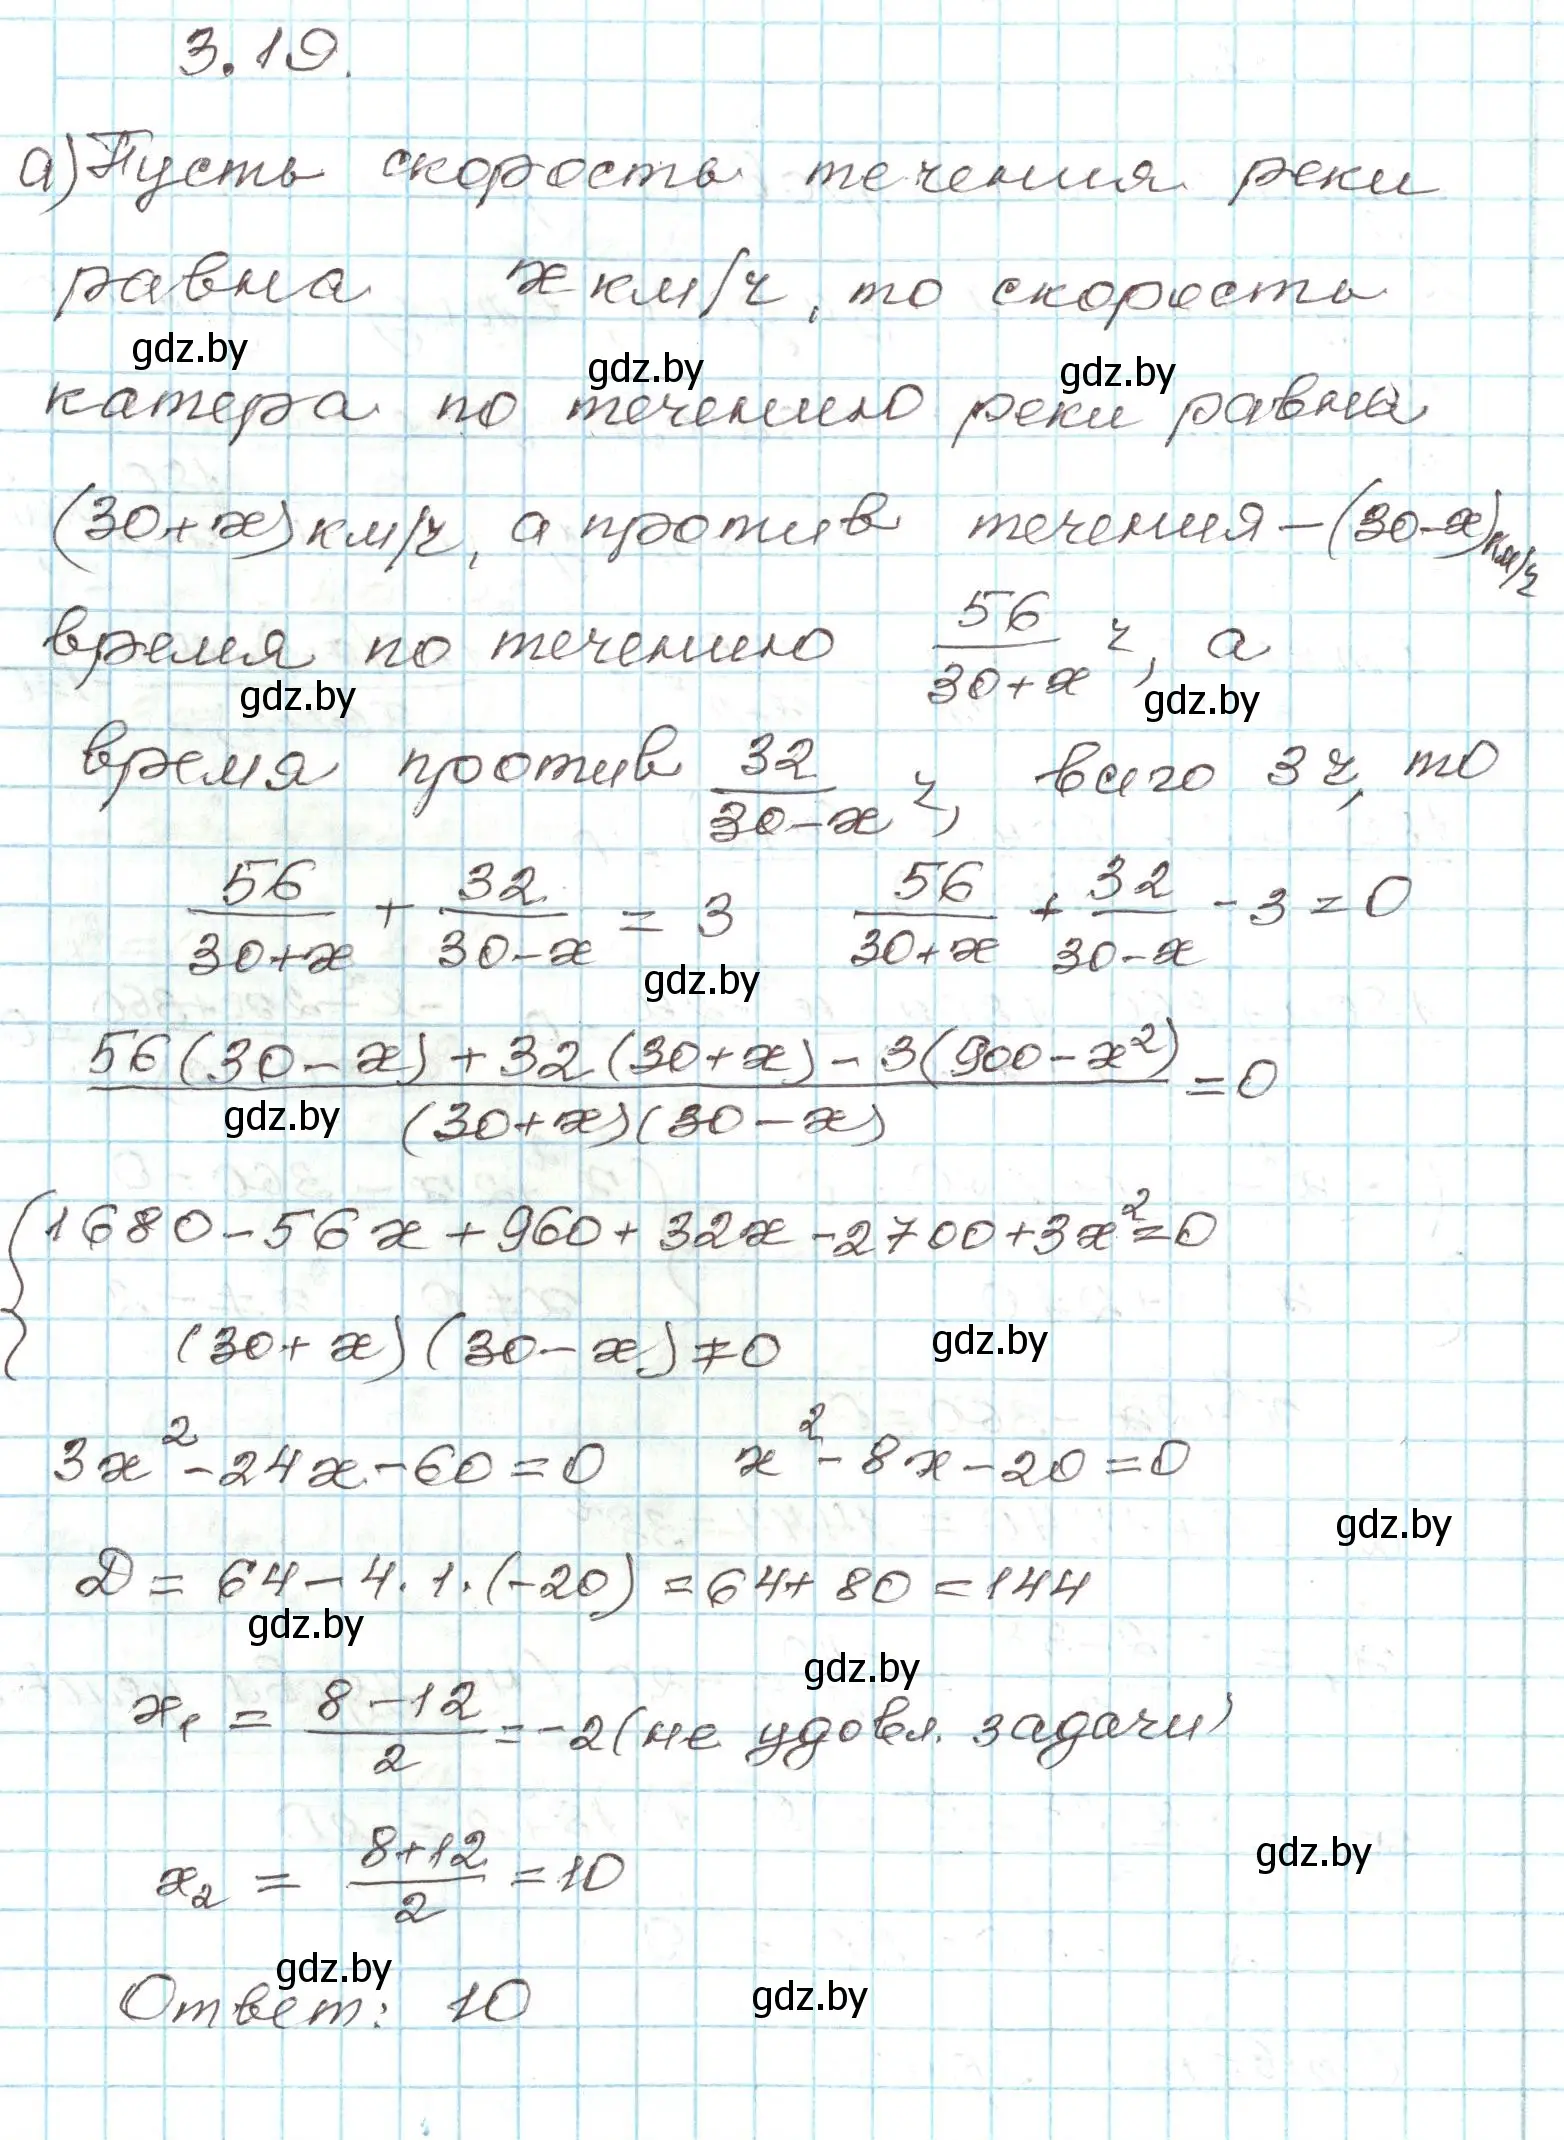 3.19.
а) Пусть скорость течения реки
равна x км/ч, то скорость
gdz.by gdz.by gdz.by
катера по течению реки равна
(30+x) км/ч, а против течения – (30-x) км/ч
время по течению 56/(30+x) ч, а
gdz.by gdz.by
время против 32/(30-x) ч, всего 3 ч, то
56/(30+x) + 32/(30-x) = 3   56/(30+x) + 32/(30-x) - 3 = 0
gdz.by
(56(30-x)+32(30+x)-3(900-x²))/((30+x)(30-x)) = 0
gdz.by
{ 1680-56x+960+32x-2700+3x²=0
(30+x)(30-x)≠0
gdz.by
3x²-24x-60=0   x²-8x-20=0
gdz.by
Д = 64-4·1·(-20) = 64+80 = 144
gdz.by
gdz.by
x₁ = (8-12)/2 = -2 (не удовл. задачи)
x₂ = (8+12)/2 = 10
gdz.by
gdz.by
Ответ: 10
gdz.by